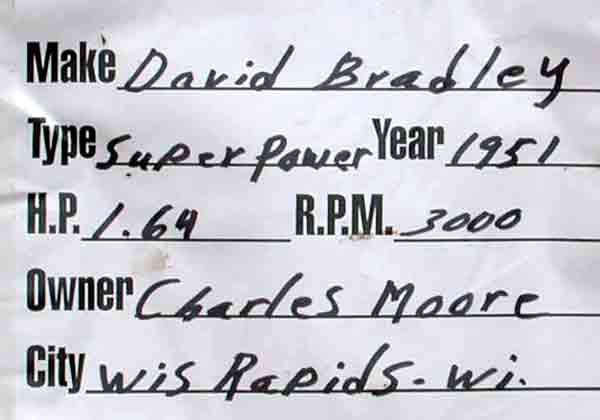 Make David Bradley
Type Super Power Year 1951
H.P. 1.64 R.P.M. 3000
Owner Charles Moore
City Wis Rapids. Wi.